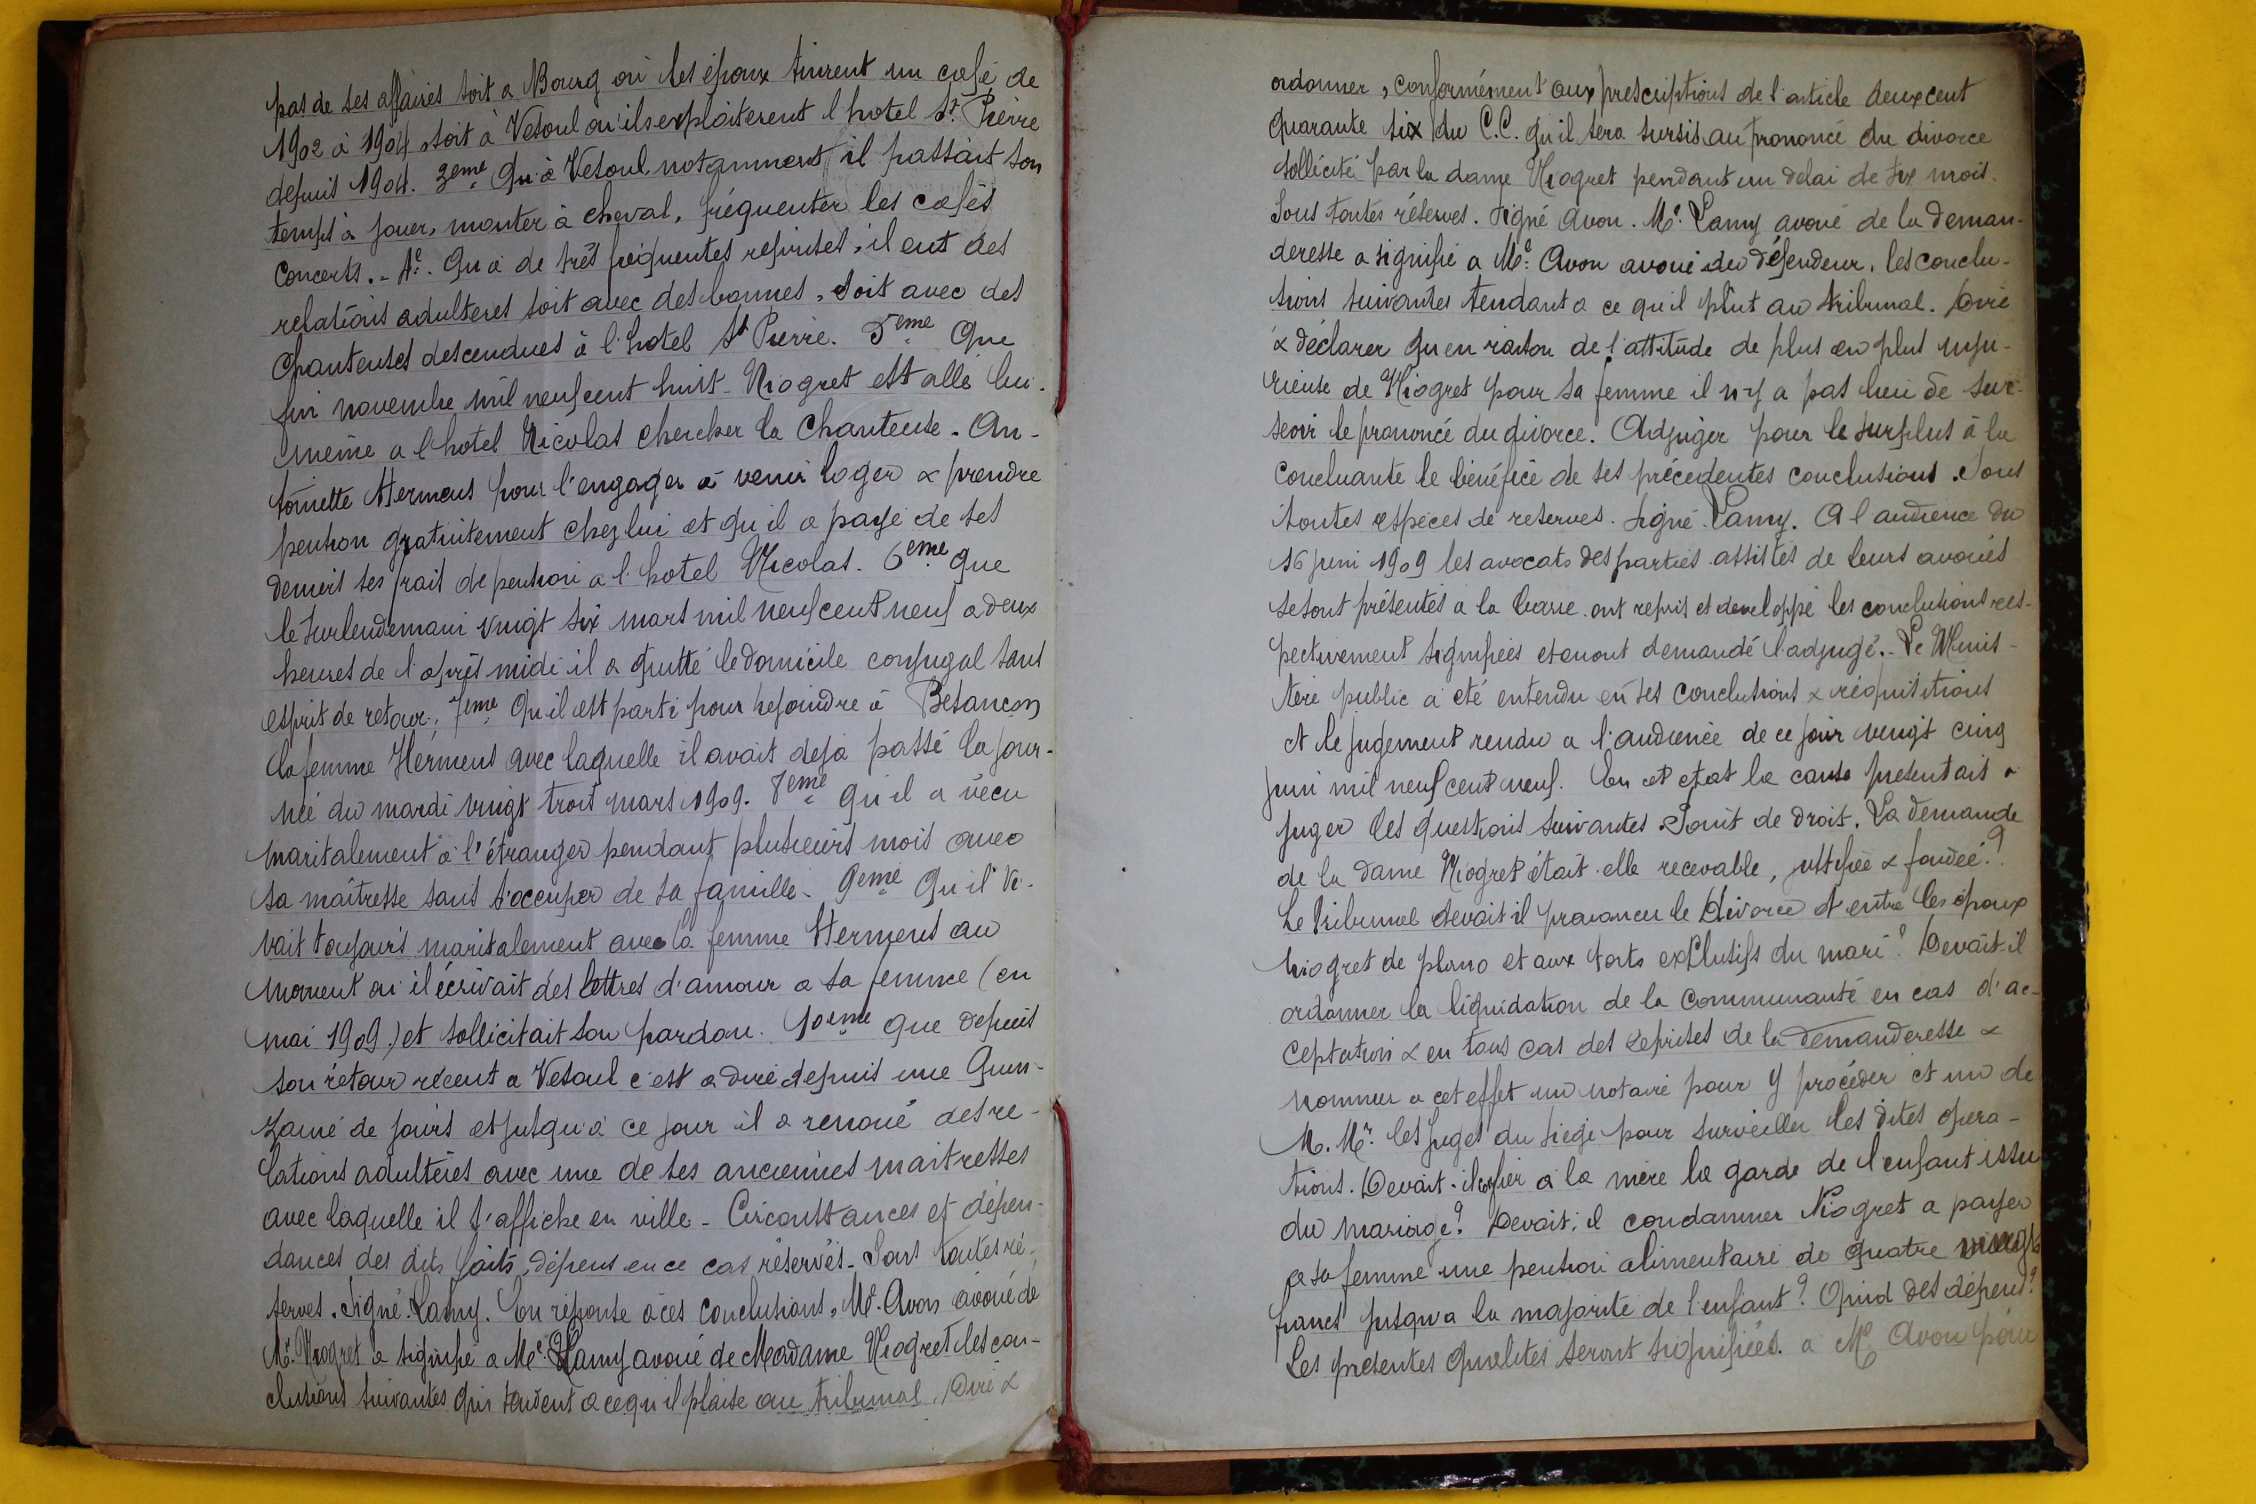 pas de ses affaires soit a Bourg où les époux tinrent un café de
1902 à 1904, soit à Vesoul où ils exploiterent l'hotel St. Pierre
depuis 1904. 3eme Qu'à Vesoul notamment il passait son
temps à jouer, monter à cheval, fréquenter les cafés
concerts. - 4e. Qu'à de très fréquentes reprises, il eut des
relations adulteres soit avec des bonnes, soit avec des
chanteuses descendues à l'hotel St Pierre. 5eme Que
fin novembre mil neuf cent huit - Niogret est allé lui-
même a l'hotel Nicolas chercher la Chanteuse - An-
toinette Hermens pour l'engager à venir loger & prendre
pension gratuitement chez lui et qu'il a payé de ses
deniers ses frais de pension a l'hotel Nicolas. 6eme Que
le surlendemain vingt six mars mil neuf cent neuf a deux
heures de l'après midi il a quitté le domicile conjugal sans
esprit de retour. 7eme Qu'il est parti pour rejoindre à Besançon
la femme Hermens avec laquelle il avait dejà passé la jour-
née du mardi vingt trois mars 1909. 8eme Qu'il a vécu
maritalement à l'étranger pendant plusieurs mois avec
sa maîtresse sans s'occuper de sa famille. 9eme Qu'il vi-
vait toujours maritalement avec la femme Hermens au
moment où il écrivait des lettres d'amour a sa femme (en
mai 1909) et sollicitait son pardon. 10eme Que depuis
son retour récent a Vesoul c'est a dire depuis une Quin-
zaine de jours et jusqu'à ce jour il a renoué des re-
lations adultères avec une de ses anciennes maitresses
avec laquelle il s'affiche en ville - Circonstances et dépen-
dances des dits faits, dépens en ce cas réservés - Sous toutes ré-
serves. Signé. Lamy. En réponse à ces conclusions, Me. Avon avoué de
Mr. Niogret a signifié a Me. Lamy avoué de Madame Niogret les con-
clusions suivantes qui tendent a ce qu'il plaise au tribunal. Dire &
ordonner, conformément aux prescriptions de l'article deux cent
quarante six du C.C. qu'il sera sursis au prononcé du divorce
sollicité par la dame Niogret pendant un delai de six mois.
Sous toutes réserves. Signé Avon. Me. Lamy avoué de la deman-
deresse a signifié a Me. Avon avoué du défendeur, les conclu-
sions suivantes tendant a ce qu'il plût au tribunal. Dire
& déclarer qu'en raison de l'attitude de plus en plus inju-
rieuse de Niogret pour sa femme il n'y a pas lieu de sur-
seoir le prononcé du divorce. Adjuger pour le surplus à la
concluante le bénéfice de ses précedentes conclusions. Sous
toutes espèces de reserves. Signé Lamy. A l'audience du
16 juin 1909 les avocats des parties assistés de leurs avoués
se sont présentés a la barre ont repris et developpé les conclusions res-
pectivement signifiées et en ont demandé l'adjugé. - Le Minis-
tère public a été entendu en ses conclusions & réquisitions
et le jugement rendu a l'audience de ce jour vingt cinq
juin mil neuf cent neuf. En cet état la cause présentait a
juger les questions suivantes. Point de droit. La demande
de la dame Niogret était-elle recevable, justifiée & fondée?
Le Tribunal devait il prononcer le Divorce d'entre les époux
Niogret de plano et aux torts exclusifs du mari? Devait-il
ordonner la liquidation de la communauté en cas d'ac-
ceptation & en tous cas des reprises de la demanderesse &
nommer a cet effet un notaire pour y procéder et un de
M. Mr. les Juges du Siège pour surveiller les dites opera-
tions. Devait-il confier à la mère la garde de l'enfant issu
du mariage? Devait-il condamner Niogret a payer
a sa femme une pension alimentaire de quatre vingts
francs jusqu'a la majorité de l'enfant? Quid des dépens?
Les présentes qualités seront signifiées a Me Avon pour